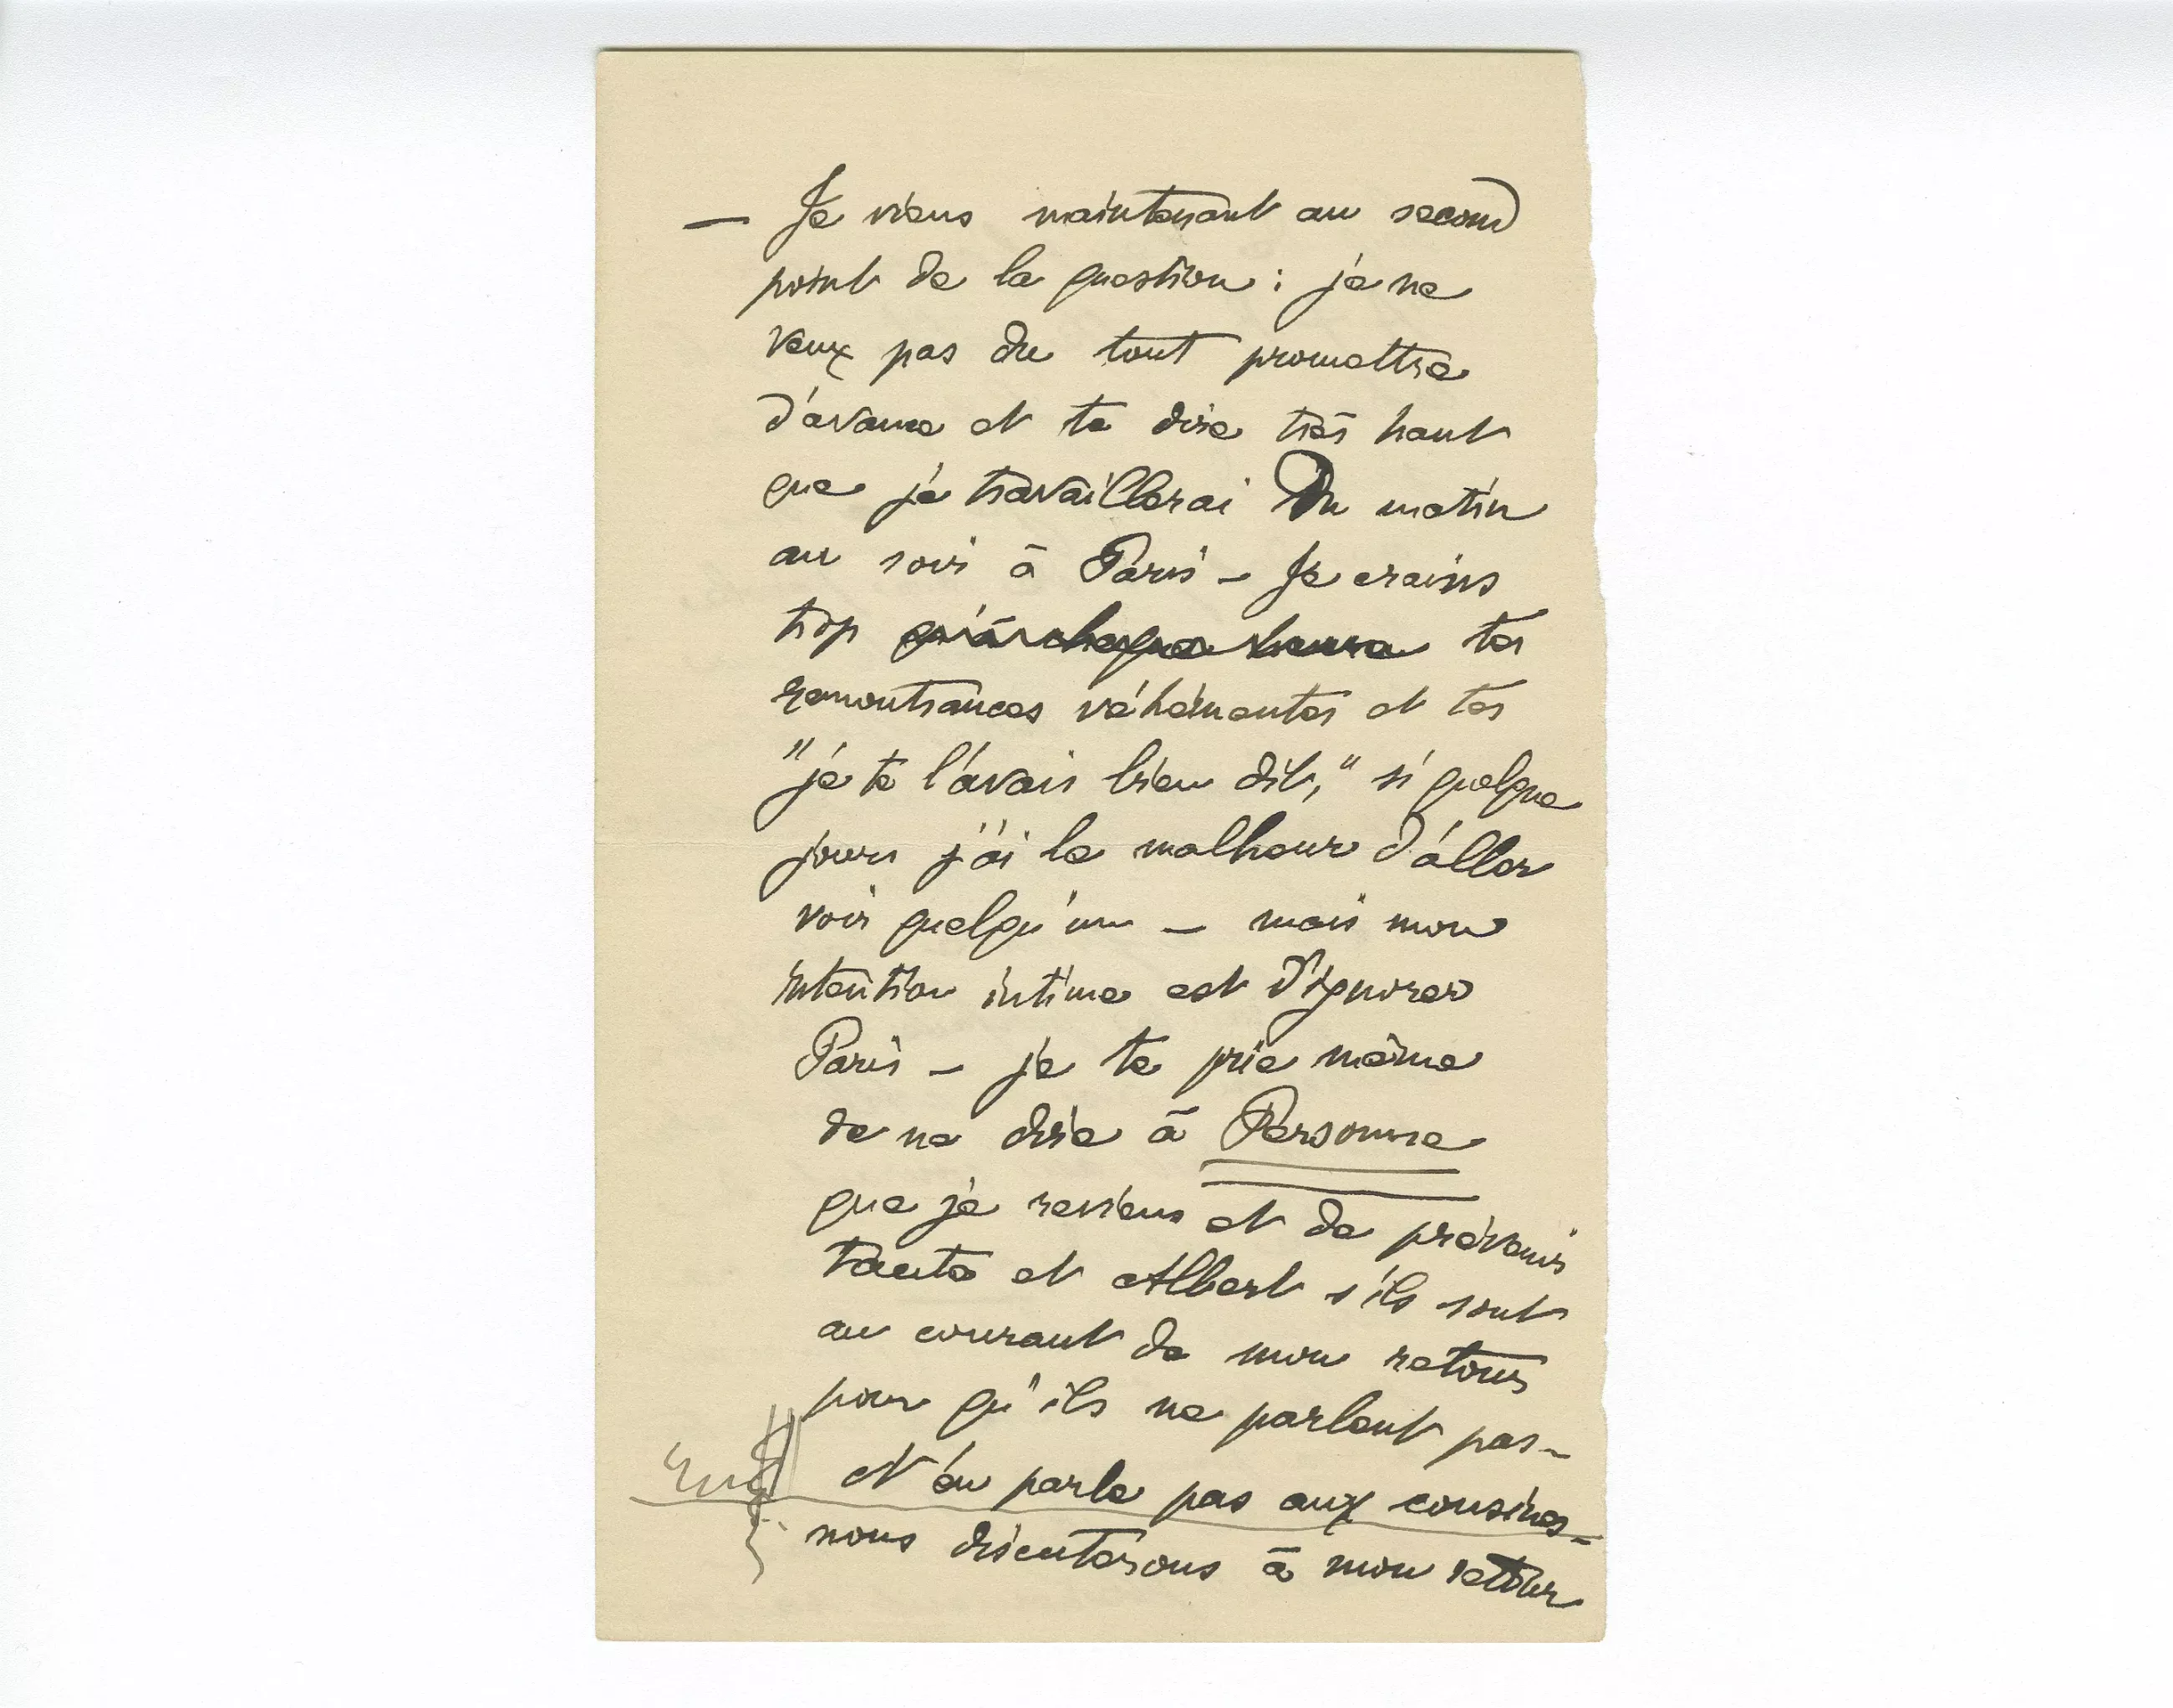 — Je viens maintenant au second
point de la question : je ne
veux pas du tout promettre
d'avance et te dire très haut
que je travaillerai du matin
au soir à Paris – Je crains
trop qu'à chaque heure tes
remontrances véhémentes et tes
"je te l'avais bien dit," si quelque
jours j'ai le malheur d'aller
voir quelqu'un – mais mon
intention intime est d'ignorer
Paris – je te prie même
de ne dire à Personne
que je reviens et de prévenir
tante et Albert s'ils sont
au courant de mon retour
pour qu'ils ne parlent pas –
et n'en parle pas aux cousines –
nous discuterons à mon retour